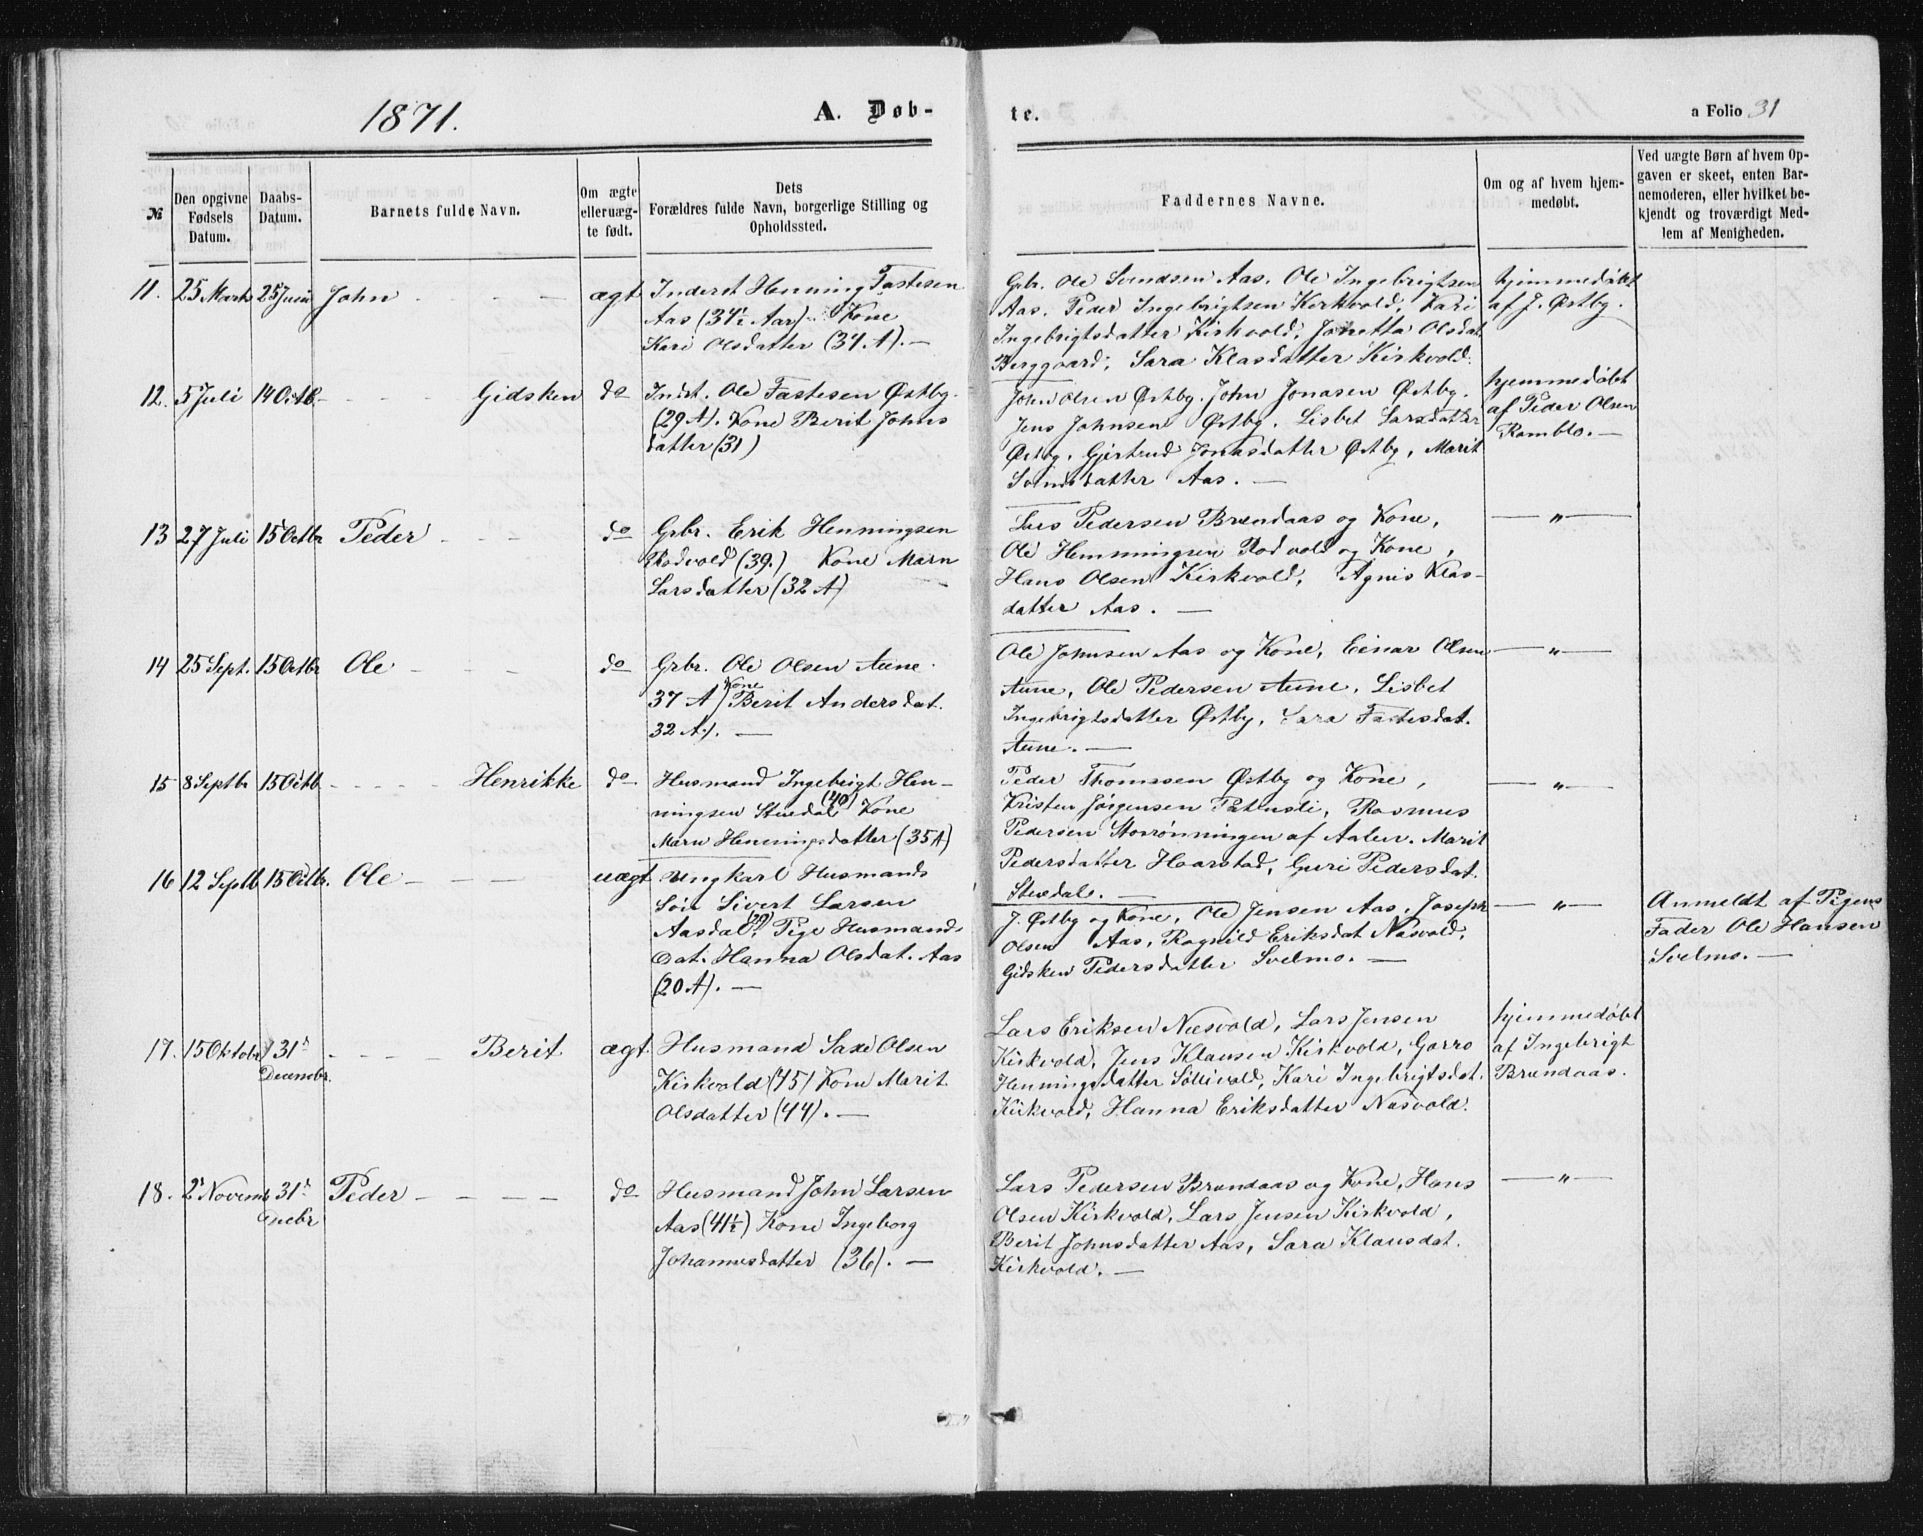 1871.
A. Døb-
te.
a Folio 31
№
Den opgivne
Fødsels
Datum.
Daabs-
Datum.
Barnets fulde Navn.
Om ægte
elleruæg-
te født.
Dets
Forældres fulde Navn, borgerlige Stilling og
Opholdssted.
Faddernes Navne.
Om og af hvem hjem-
medøbt.
Ved uægte Børn af hvem Op-
gaven er skeet, enten Bar-
nemoderen, eller hvilket be-
kjendt og troværdigt Med-
lem af Menigheden.
11. 25 Marts 25 Juni John - - ægt
Inderst Henning Fastesen
Aas (34½ Aar) Kone
Kari Olsdatter (34 A). —
Grbr. Ole Svendsen Aas. Ole Ingebrigtsen
Aas. Peder Ingebrigtsen Kirkvold, Kari
Ingebrigtsdatter Kirkvold, Jonetta Olsdat.
Berggaard, Sara Klasdatter Kirkvold.
hjemmedøbt
af J. Østby.
12. 5 Juli 14 Octb. - - - - Gidsken do
Indst. Ole Fastesen Østby.
(29 A). Kone Berit Johns
datter (31)
John Olsen Østby. John Jonasen Østby.
Jens Johnsen Østby. Lisbet Larsdatter
Østby. Gjertrud Jonasdatter Østby, Marit
Svendsdatter Aas. —
hjemmedøbt
af Peder Olsen
Rambto. —
13 27 Juli 15 Octbr Peder - - - do
Grbr. Erik Henningsen
Rodvold (39.) Kone Marn
Larsdatter (32 A)
Lars Pedersen Brændaas og Kone,
Ole Hemmingsen Rodvold og Kone,
Hans Olsen Kirkvold, Agnis Klas-
datter Aas. —
— " —
14 25 Sept. 15 Octbr Ole - - - do
Grbr. Ole Olsen Aune.
Kone
37 A) Berit Andersdat.
32 A). —
Ole Johnsen Aas og Kone, Einar Olsen
Aune, Ole Pedersen Aune, Lisbet
Ingebrigtsdatter Østby, Sara Fastesdat.
Aune. —
— " —
15 8 Septbr 15 Octb. - - - - Henrikke do
Husmand Ingebrigt Hen-
(40)
ningsen Stuedal Kone
Marn Henningsdatter (35 A)
Peder Thomssen Østby og Kone,
Kristen Jørgensen Patrusli, Rasmus
Pedersen Storrønningen af Aalen. Marit
Pedersdatter Haarstad, Guri Pedersdat.
Stuedal. —
— " —
16 12 Septb 15 Octbr. Ole — — — uægt
Ungkarl Husmands
Søn Sivert Larsen
Aasdal, (20) Pige Husmands
Dat. Hanna Olsdat. Aas
(20 A). —
J. Østby og Kone, Ole Jensen Aas, Joseph
Olsen Aas, Ragnild Eriksdat Næsvold,
Gidsken Pedersdatter Svelmo. —
— " —
Anmeldt af Pigens
Fader Ole Hansen
Svelmo. —
17. 15 Oktobr 31te - - - - Berit ægt.
Decembr.
Husmand Saxe Olsen
Kirkvold (45) Kone Marit
Olsdatter (44). —
Lars Eriksen Næsvold, Lars Jensen
Kirkvold, Jens Klausen Kirkvold, Gorro
Henningsdatter Søllivold, Kari Ingebrigtsdat.
Kirkvold, Hanna Eriksdatter Næsvold.
hjemmedøbt
af Ingebrigt
Brændaas.
18. 2 Novemb 31te Peder — — — — do
Decbr
Husmand John Larsen
Aas (41½) Kone Ingeborg
Johannesdatter (36). —
Lars Pedersen Brændaas og Kone, Hans
Olsen Kirkvold, Lars Jensen Kirkvold,
Berit Johnsdatter Aas, Sara Klausdat.
Kirkvold. —
— " —